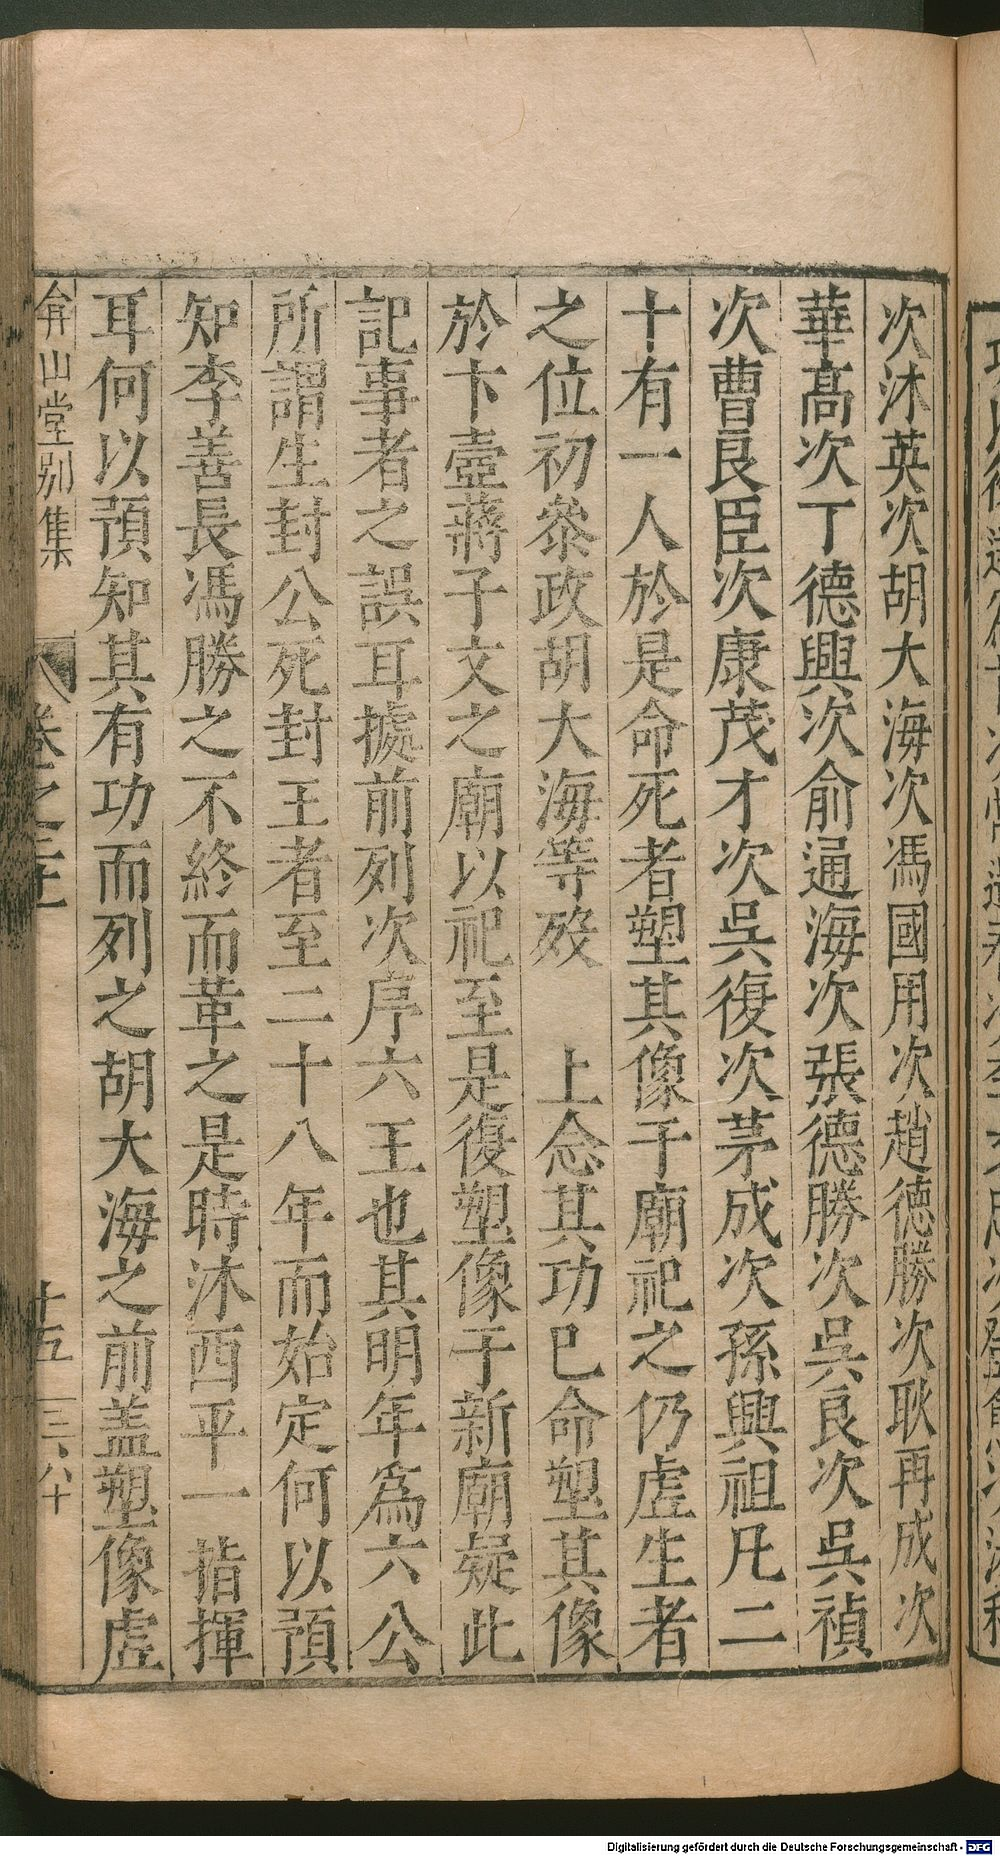 次沐英次胡大海次馮國用次趙德勝次耿再成次
華高次丁德興次俞通海次張德勝次吳良次吳禎
次曹良臣次康茂才次吳復次茅成次孫興祖凡二
十有一人於是命死者塑其像于廟祀之仍虛生者
之位初叅政胡大海等歿　上念其功已命塑其像
於卞壼蔣子文之廟以祀至是復塑像于新廟疑此
記事者之誤耳據前列次序六王也其明年為六公
所謂生封公死封王者至二十八年而始定何以預
知李善長馮勝之不終而革之是時沐西平一指揮
耳何以預知其有功而列之胡大海之前盖塑像虛
弇山堂別集
卷之
十五
三八十
Digitalisierung gefördert durch die Deutsche Forschungsgemeinschaft - DFG